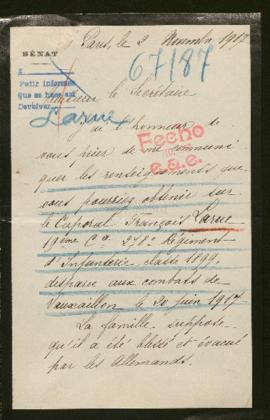 Paris, le 2 Novembre 1917
SÉNAT
67187
Pedir informes
Que se haga así
Devolver.
Monsieur le Secrétaire
Larue
J'ai l'honneur de
vous prier de me communi
quer les renseignements que
vous pourriez obtenir sur
le Caporal François Larue
19ème Cie 278e Régiment
d'Infanterie classe 1899.
disparu aux combats de
Vauxaillon le 20 juin 1917
La famille suppose
qu'il a été blessé et évacué
par les Allemands.
Fecho
e.a.e.